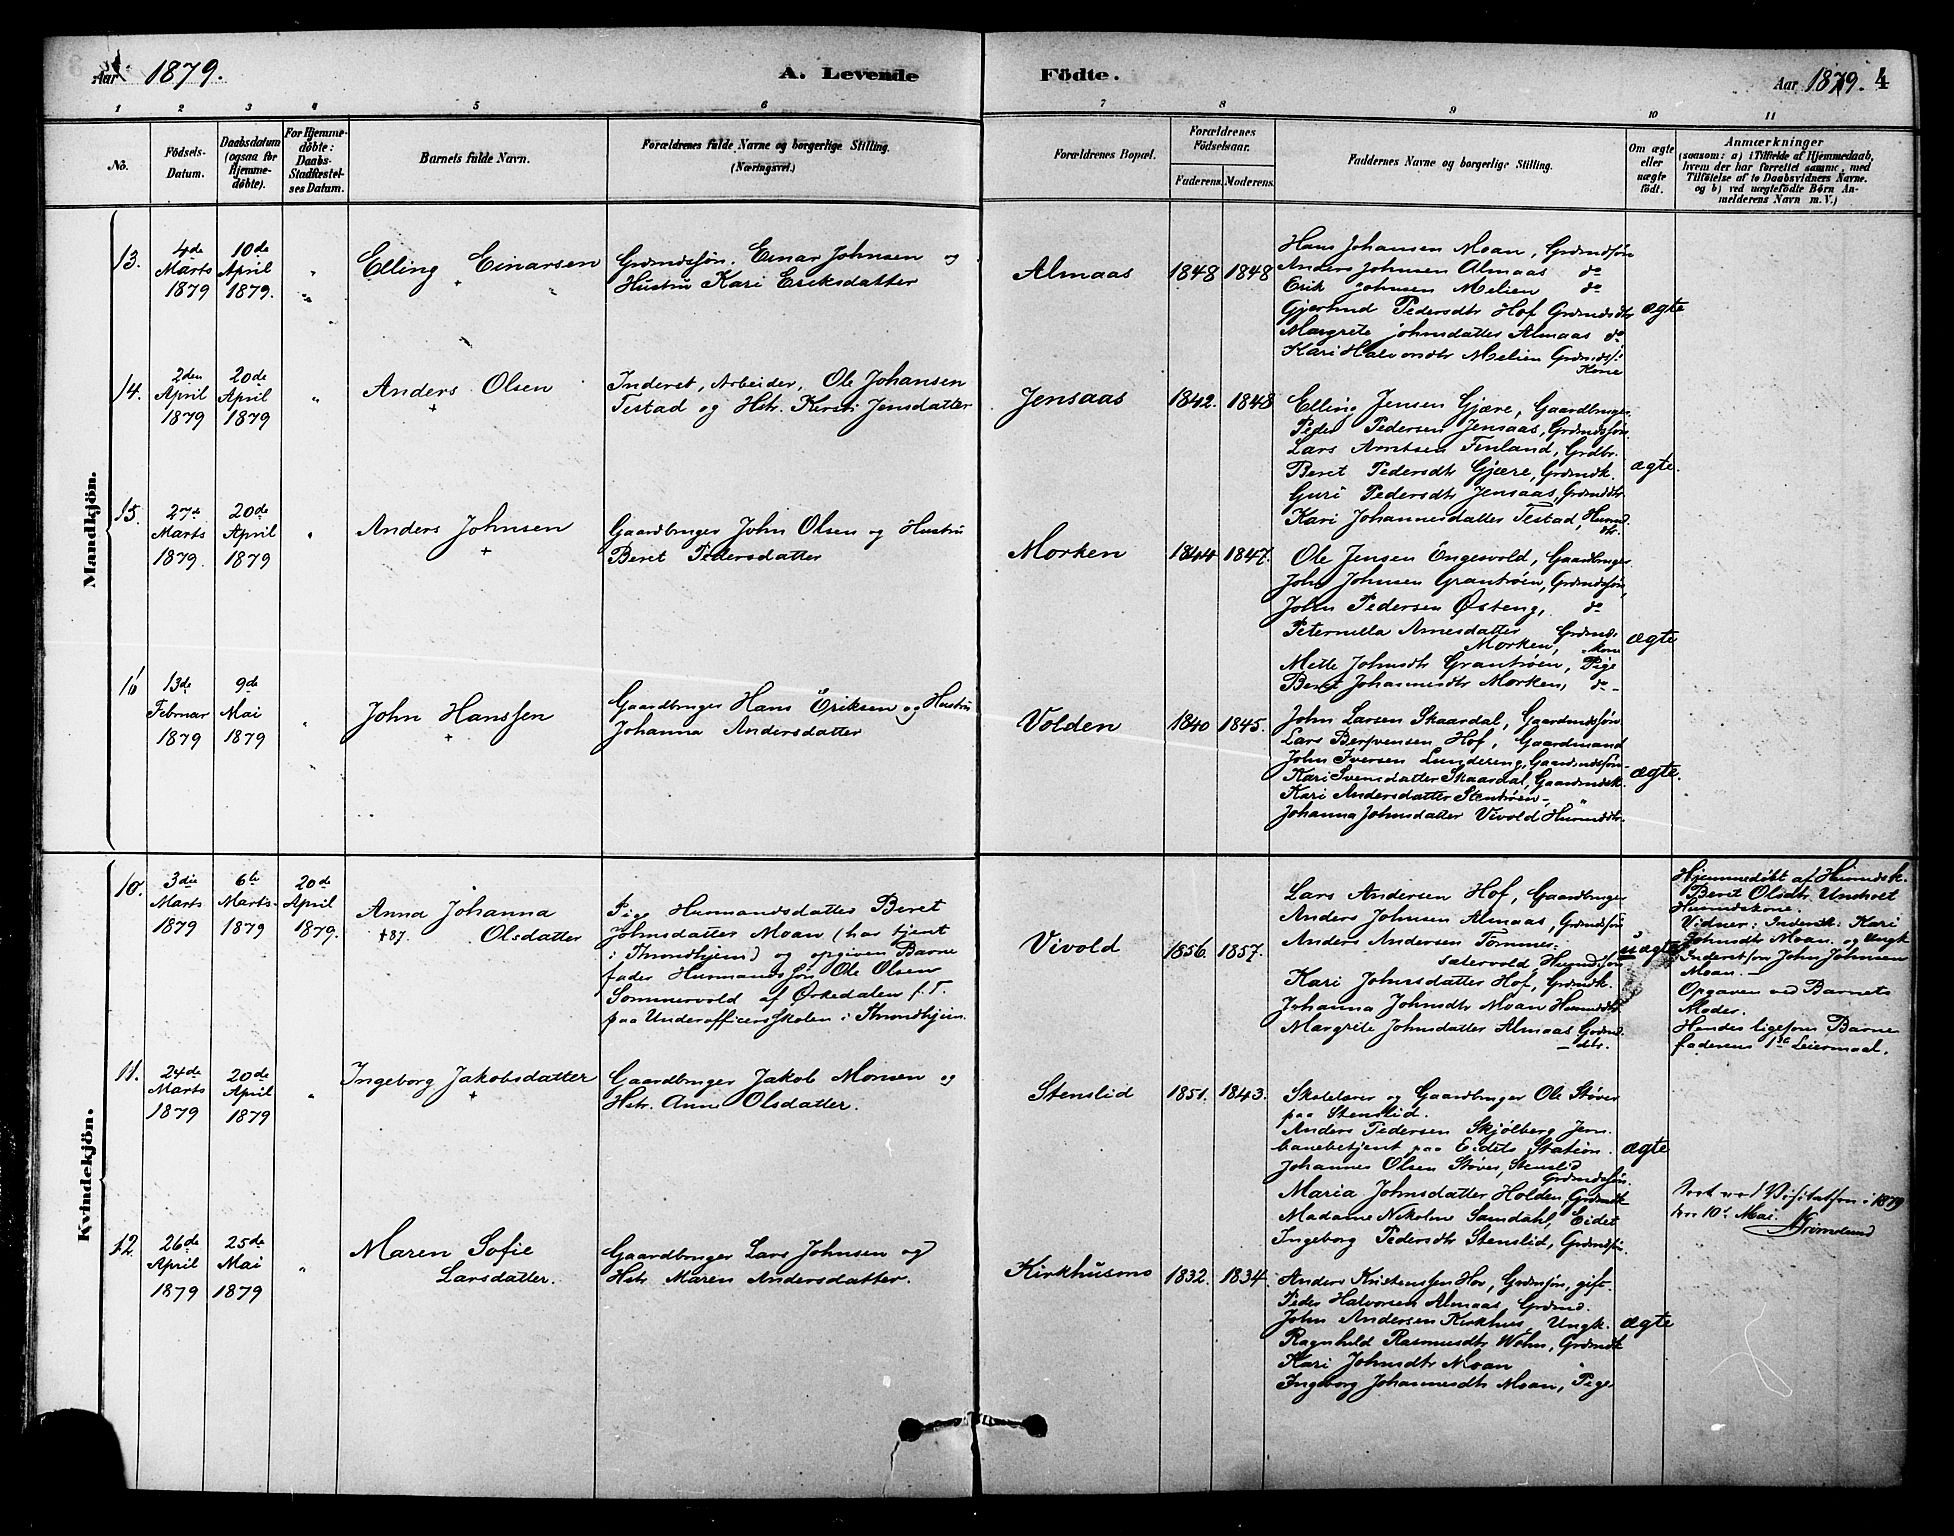 Aar 1879.
A. Levende Födte.
Aar 1879. 4
1 2 3 4 5 6 7 8 9 10 11
No.
Födsels-
Datum.
Daabsdatum
(ogsaa for
Hjemme-
døbte).
For Hjemme-
døbte:
Daabs-
Stadfæstel-
ses Datum.
Barnets fulde Navn.
Forældrenes fulde Navne og borgerlige Stilling.
(Næringsvei.)
Forældrenes Bopæl.
Forældrenes
Födselsaar.
Faderens. Moderens.
Faddernes Navne og borgerlige Stilling.
Om ægte
eller
uægte
født.
Anmærkninger
(saasom: a) i Tilfælde af Hjemmedaab,
hvem der har forrettet samme, med
Tilføielse af to Daabsvidners Navne.
og b) ved uægtefødte Børn An-
melderens Navn m. V.)
Mandkjön.
13.
4de
Marts
1879
10de
April
1879.
Elling Einarsen
Grdmdssøn. Einar Johnsen og
Hustru Kari Eriksdatter
Almaas
1848 1848
Hans Johansen Moan, Grdmdsøn
Anders Johnsen Almaas do
Erik Johnsen Melien do
Gjertrud Pedersdtr Hof Grdmdsdtr
Margrete Johnsdatter Almaas do
Kari Halvorsdtr Melien Grdmds
Kone
ægte
14.
2den
April
1879
20de
April
1879
Anders Olsen
Inderst, Arbeider, Ole Johansen
Testad og Hstr. Kersti Jensdatter
Jensaas
1842. 1848
Elling Jensen Gjære, Gaardbruger
Peder Pedersen Jensaas, Grdmdsøn.
Lars Arntsen Finland, Grdbr.
Beret Pedersdtr Gjære, Grdmdk.
Guri Pedersdtr Jensaas, Grdmddtr
Kari Johannesdatter Testad, Husmd.
dtr.
ægte.
15.
27de
Marts
1879.
20de
April
1879
Anders Johnsen
Gaardbruger John Olsen og Hustru
Beret Pedersdatter
Morken
1844 1847.
Ole Jensen Engesvold, Gaardbruger
John Johnsen Grantrøen, Grdmdsøn,
John Pedersen Østeng, do
Peternella Arnesdatter
Morken, Grdmds
kone
Mette Johnsdtr Grantrøen, Pige
Beret Johannesdtr Morken, do
ægte
16
13de
Februar
1879
9de
Mai
1879
John Hanssen
Gaardbruger Hans Eriksen og Hustru
Johanna Andersdatter
Volden
1840 1845.
John Larsen Skaardal, Gaardmdssøn
Lars Bersvensen Hof, Gaardmand
John Iversen Lundereng, Gaardmdsøn
Kari Svensdatter Skaardal, Gaardmdsk.
Kari Andersdatter Stentrøen "
Johanna Johnsdatter Vivold Husmddtr.
ægte.
Kvindekjön.
10.
3die
Marts
1879
6te
Marts
1879
20de
April
1879.
Anna Johanna
Olsdatter
Pige Husmandsdatter Beret
Johnsdatter Moan (har tjent
i Throndhjem) og opgiven Barne
fader Husmandssøn Ole Olsen
Sommervold af Ørkedalen f. T.
paa Underofficersskolen i Throndhjem.
Vivold
1856. 1857.
Lars Andersen Hof, Gaardbruger
Anders Johnsen Almaas, Grdmdsøn
Anders Andersen Tømmer-
sætervold, Husmdsøn
Kari Johnsdatter Hof, Grdmdk.
Johanna Johnsdtr Moan Husmddtr
Margrete Johnsdatter Almaas Grdmd.
dtr.
uægte
Hjemmedøbt af Husmdsk.
Beret Olsdtr. Undseet
Husmdskone.
Vidner: Inderstk: Kari
Johnsdtr Moan og Ungk
Inderstsøn John Johnsen
Moan.
Opgaven ved Barnets
Moder.
Hendes ligesom Barne
faderens 1ste Leiermaal.
11.
24de
Marts
1879
20de
April
1879
Ingeborg Jakobsdatter
Gaardbruger Jakob Monsen og
Hstr. Anne Olsdatter.
Stenslid
1851. 1843.
Skolelærer og Gaardbruger Ole Støver
paa Stenslid.
Anders Pedersen Skjølberg Jern
banebetjent paa Eidets Station.
Johannes Olsen Støver, Stenslid
Grdmdsøn.
Maria Johnsdatter Holden, Grdmdk
Madame Nikoline Samdahl, Eidet
Ingeborg Pedersdtr Stenslid, Grdmds
ægte
Visitatsen i 1879
den 10de Mai.
12
26de
April
1879
25de
Mai
1879
Maren Sofie
Larsdatter.
Gaardbruger Lars Johnsen og
Hstr. Maren Andersdatter.
Kirkhusmo
1832. 1834.
Anders Kristenssen Hov, Grdmsøn, gift.
Peder Halvorsen Almaas, Grdmd.
John Andersen Kirkhus, Ungk.
Ragnhild Rasmusdtr Wohn, Grdmdk
Kari Johnsdtr Moan "
Ingeborg Johannesdtr Moan, Pige.
ægte